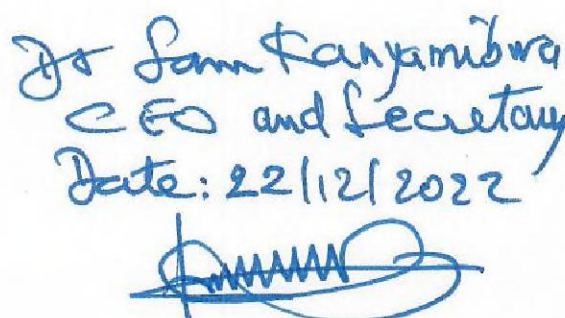 Dr Sam Kanyamibwa
CEO and Secretary
Date: 22/12/2022